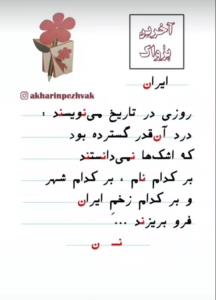 آخرین
پژواک
akharinpezhvak
ایران
روزی در تاریخ می‌نویسند :
درد آن‌قدر گسترده بود
که اشک‌ها نمی‌دانستند
بر کدام نام ، بر کدام شهر
و بر کدام زخمِ ایران
فرو بریزند ...
نــ ن